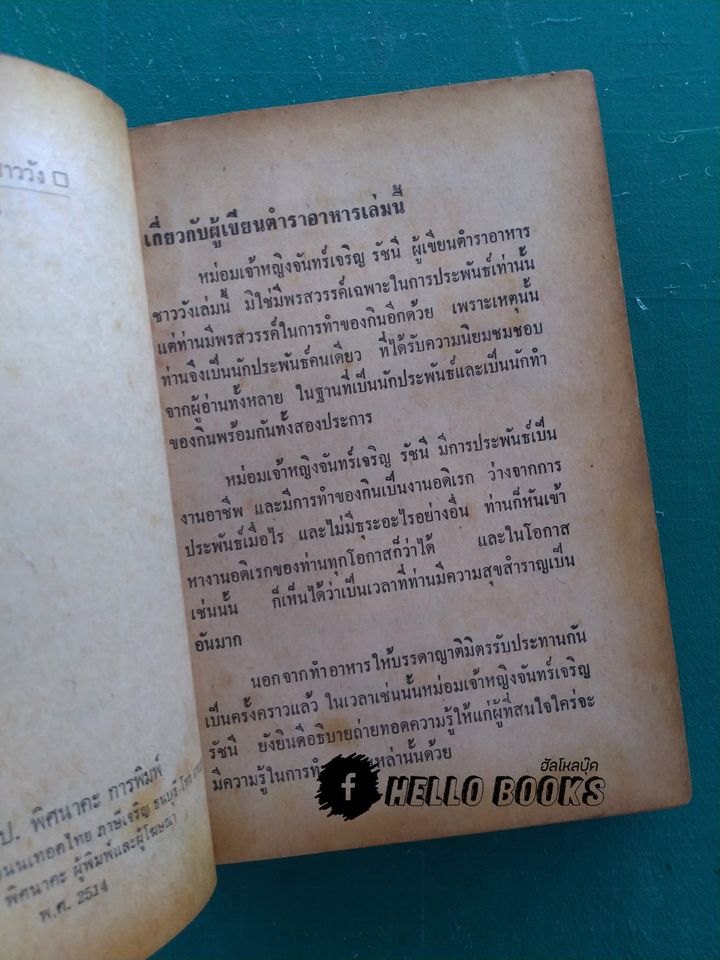 ชาววัง □
เกี่ยวกับผู้เขียนตำราอาหารเล่มนี้
หม่อมเจ้าหญิงจันทร์เจริญ รัชนี ผู้เขียนตำราอาหาร
ชาววังเล่มนี้ มิใช่มีพรสวรรค์เฉพาะในการประพันธ์เท่านั้น
แต่ท่านมีพรสวรรค์ในการทำของกินอีกด้วย เพราะเหตุนั้น
ท่านจึงเป็นนักประพันธ์คนเดียว ที่ได้รับความนิยมชมชอบ
จากผู้อ่านทั้งหลาย ในฐานที่เป็นนักประพันธ์และเป็นนักทำ
ของกินพร้อมกันทั้งสองประการ
หม่อมเจ้าหญิงจันทร์เจริญ รัชนี มีการประพันธ์เป็น
งานอาชีพ และมีการทำของกินเป็นงานอดิเรก ว่างจากการ
ประพันธ์เมื่อไร และไม่มีธุระอะไรอย่างอื่น ท่านก็หันเข้า
หางานอดิเรกของท่านทุกโอกาสก็ว่าได้ และในโอกาส
เช่นนั้น ก็เห็นได้ว่าเป็นเวลาที่ท่านมีความสุขสำราญเป็น
อันมาก
นอกจากทำอาหารให้บรรดาญาติมิตรรับประทานกัน
เป็นครั้งคราวแล้ว ในเวลาเช่นนั้นหม่อมเจ้าหญิงจันทร์เจริญ
รัชนี ยังยินดีอธิบายถ่ายทอดความรู้ให้แก่ผู้ที่สนใจใคร่จะ
มีความรู้ในการทำ เหล่านั้นด้วย
ป. พิศนาคะ การพิมพ์
ถนนเทอดไทย ภาษีเจริญ ธนบุรี โทร
พิศนาคะ ผู้พิมพ์และผู้โฆษณา
พ.ศ. 2514
ฮัลโหลบุ๊ค
f HELLO BOOKS